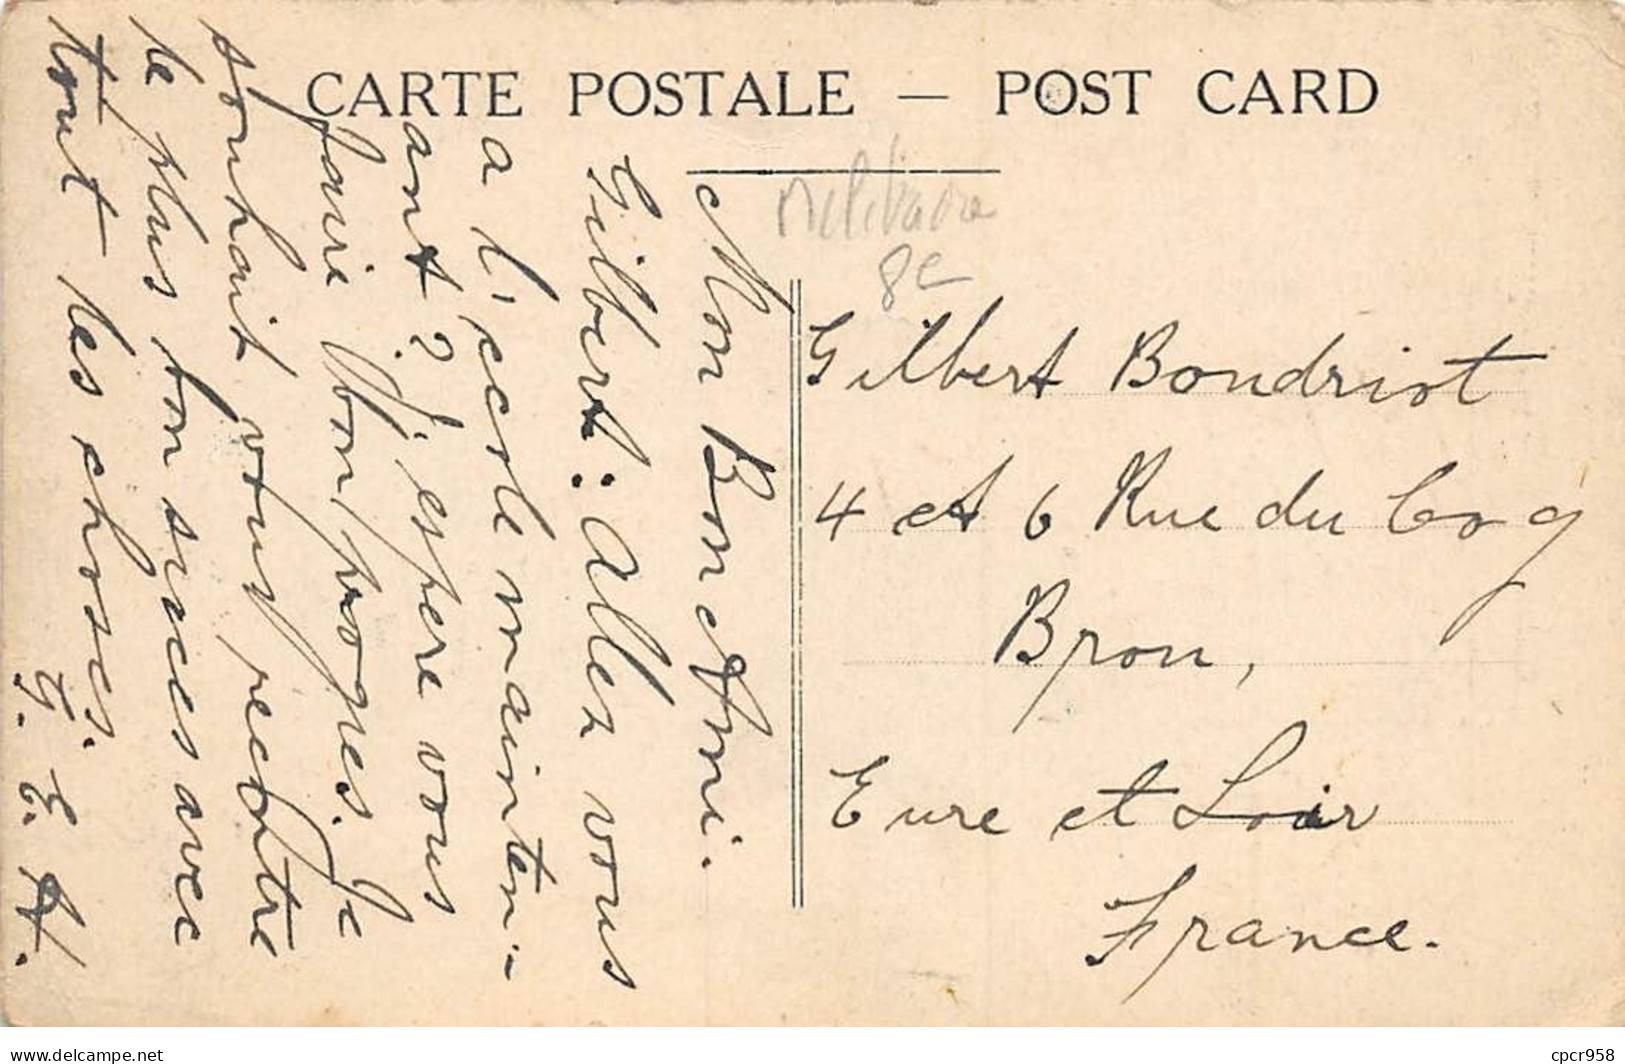 CARTE POSTALE — POST CARD
Militaire
8e
Mon Bon Ami.
Gilbert: Allez vous
a l'ecole mainten-
ant? J'espere vous
faire bon progres. Je
souhait vous recontre
le plus bon succes avec
tout les choses.
G. E. H.
Gilbert Boudriot
4 et 6 Rue du Coq
Brou,
Eure et Loir
France.
cpcr958